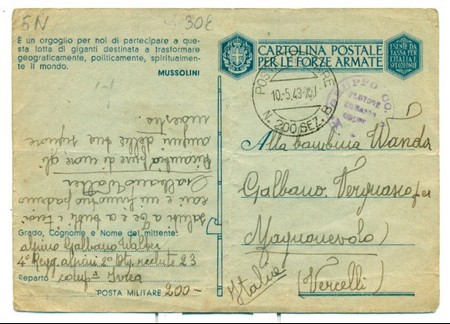 5N
30£
È un orgoglio per noi di partecipare a que-
sta lotta di giganti destinata a trasformare
geograficamente, politicamente, spiritualmen-
te il mondo.
MUSSOLINI
CARTOLINA POSTALE
PER LE FORZE ARMATE
ESENTE DA
TASSA PER
L'ITALIA E
POSTA MILITARE
10.5.43
N. 200 SEZ. B
Alla bambina Wanda
Galbano Vergnasco per
Magnonevolo
(Vercelli)
Italia
saluti a te e a tutti i tuoi
cari e un
Galbano Walter
di cuore gli
auguri delle tue signore
maestre
Grado, Cognome e Nome del mittente:
alpino Galbano Walter
4° Regg. alpini 2° Btg. reclute 23
Reparto comp = Ivrea
POSTA MILITARE 200-